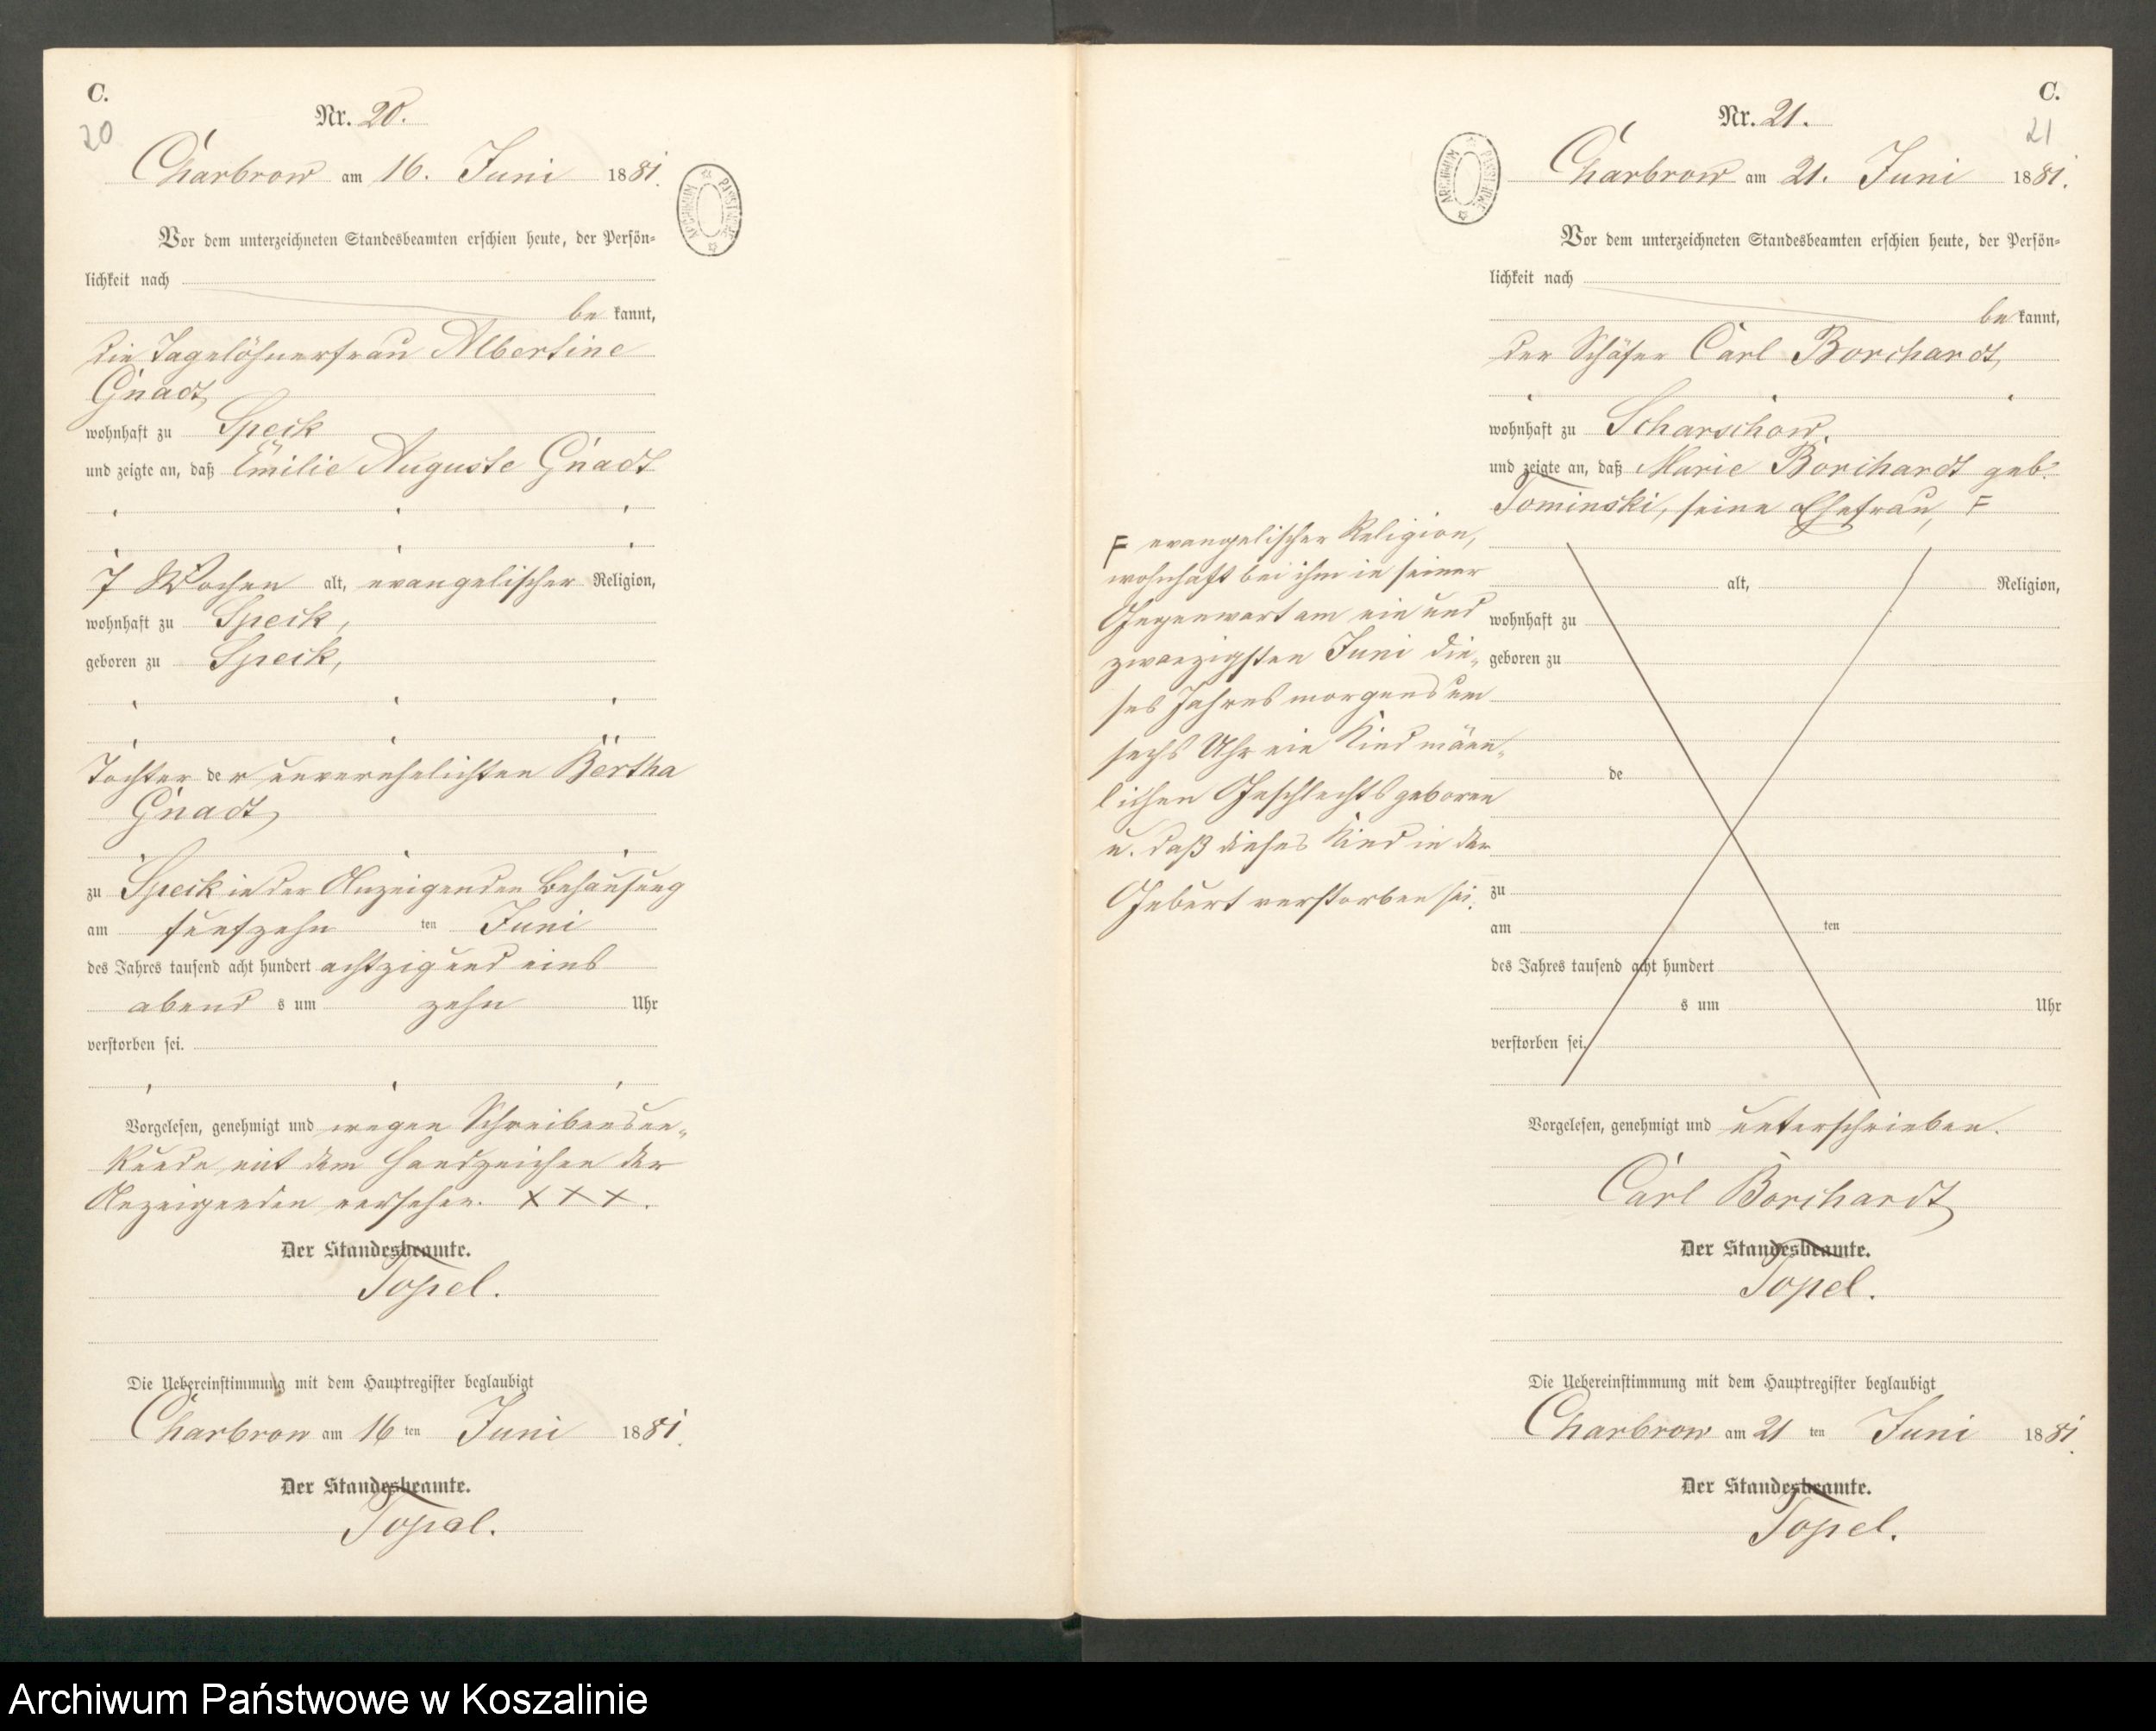 C.
20
Nr. 20.
Charbrow am 16. Juni 1881.
ARCHIWUM PAŃSTWOWE
Vor dem unterzeichneten Standesbeamten erschien heute, der Persön-
lichkeit nach
be kannt,
die Tagelöhnerfrau Albertine
Gnadt,
wohnhaft zu Speck
und zeigte an, daß Emilie Auguste Gnadt
7 Wochen alt, evangelischer Religion,
wohnhaft zu Speck,
geboren zu Speck,
Tochter der unverehelichten Bertha
Gnadt,
zu Speck in der Anzeigenden Behausung
am fünfzehn ten Juni
des Jahres tausend acht hundert achtzig und eins
abend s um zehn Uhr
verstorben sei.
Vorgelesen, genehmigt und wegen Schreibensun-
kunde mit dem Handzeichen der
Anzeigenden versehen. XXX.
Der Standesbeamte.
Topel.
Die Uebereinstimmung mit dem Hauptregister beglaubigt
Charbrow am 16 ten Juni 1881.
Der Standesbeamte.
Topel.
C.
21
Nr. 21.
Charbrow am 21. Juni 1881.
ARCHIWUM PAŃSTWOWE
Vor dem unterzeichneten Standesbeamten erschien heute, der Persön-
lichkeit nach
be kannt,
der Schäfer Carl Borchardt,
wohnhaft zu Scharschow.
und zeigte an, daß Marie Borchardt geb.
Tominski, seine Ehefrau, F
F evangelischer Religion,
wohnhaft bei ihm in seiner
Gegenwart am ein und
zwanzigsten Juni die-
ses Jahres morgens um
sechs Uhr ein Kind männ-
lichen Geschlechts geboren
u. daß dieses Kind in der
Geburt verstorben sei.
alt, Religion,
wohnhaft zu
geboren zu
de
zu
am ten
des Jahres tausend acht hundert
s um Uhr
verstorben sei.
Vorgelesen, genehmigt und unterschrieben.
Carl Borchardt
Der Standesbeamte.
Topel.
Die Uebereinstimmung mit dem Hauptregister beglaubigt
Charbrow am 21 ten Juni 1881.
Der Standesbeamte.
Topel.
Archiwum Państwowe w Koszalinie